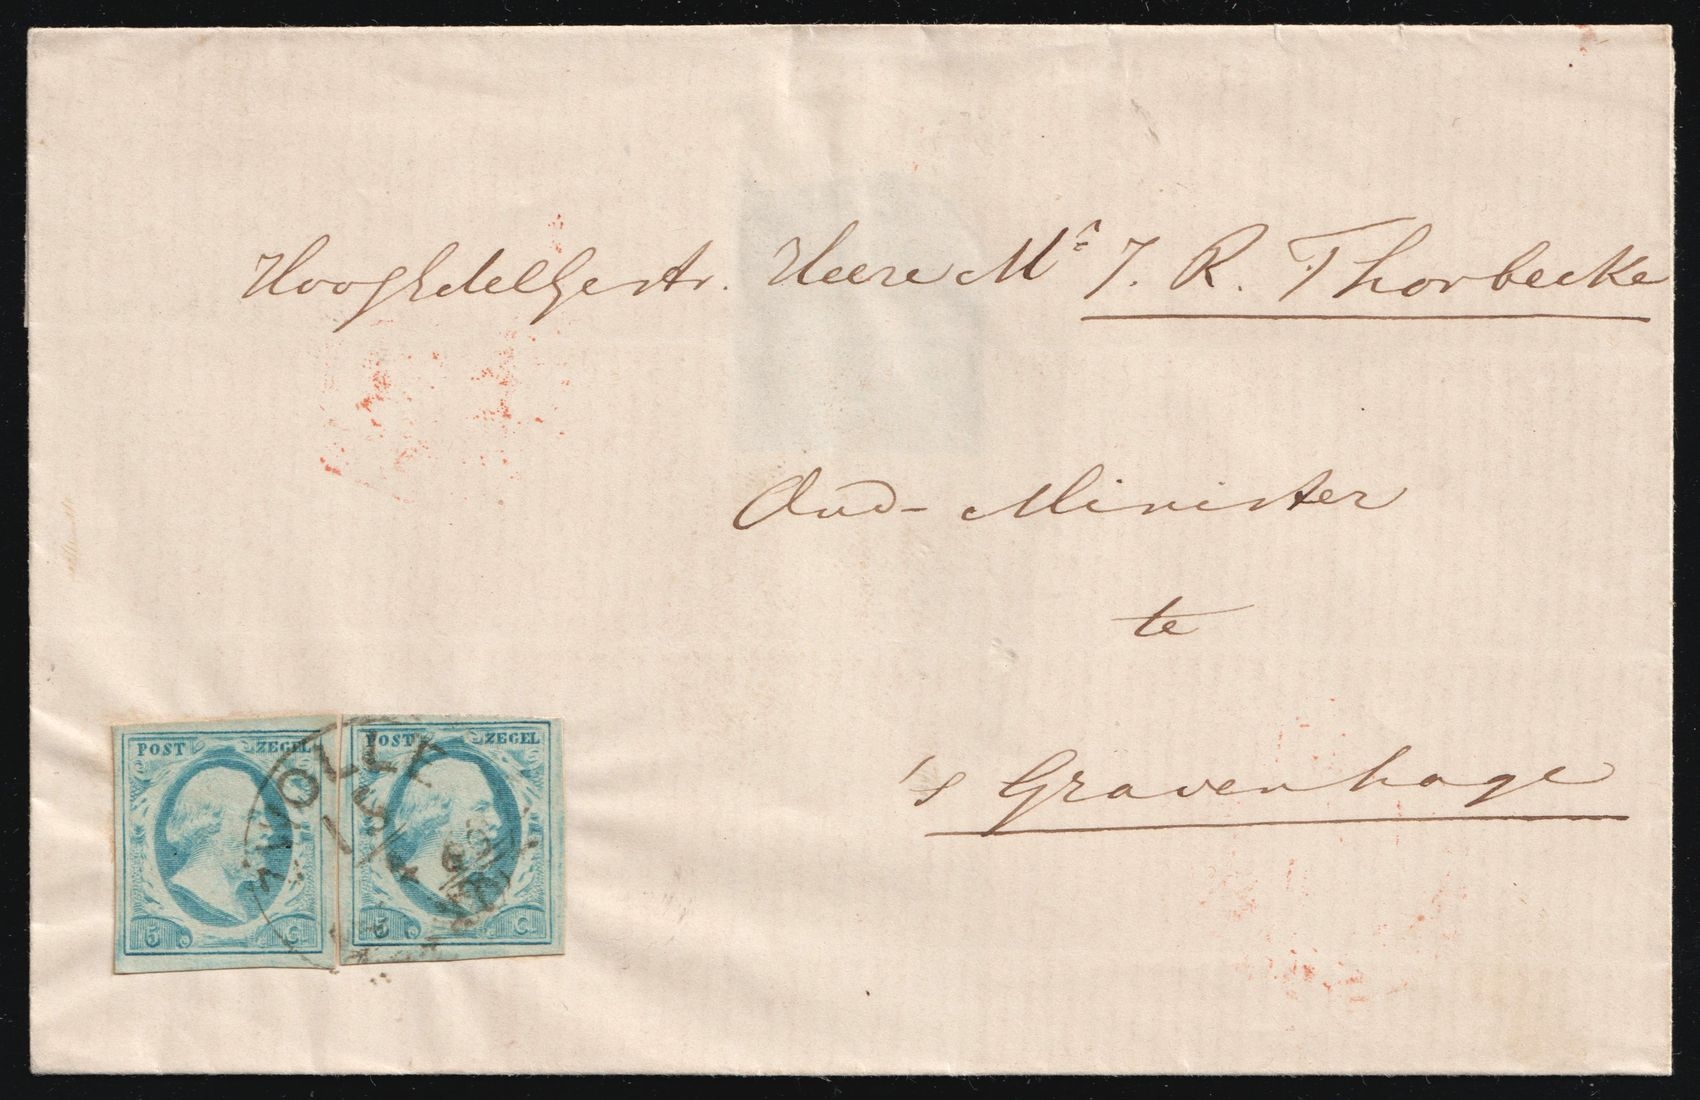 HoogEdelGestr. Heere Mr J. R. Thorbecke
Oud-Minister
te
's Gravenhage
POST ZEGEL
5 Ct
POST ZEGEL
5 Ct
ZWOLLE